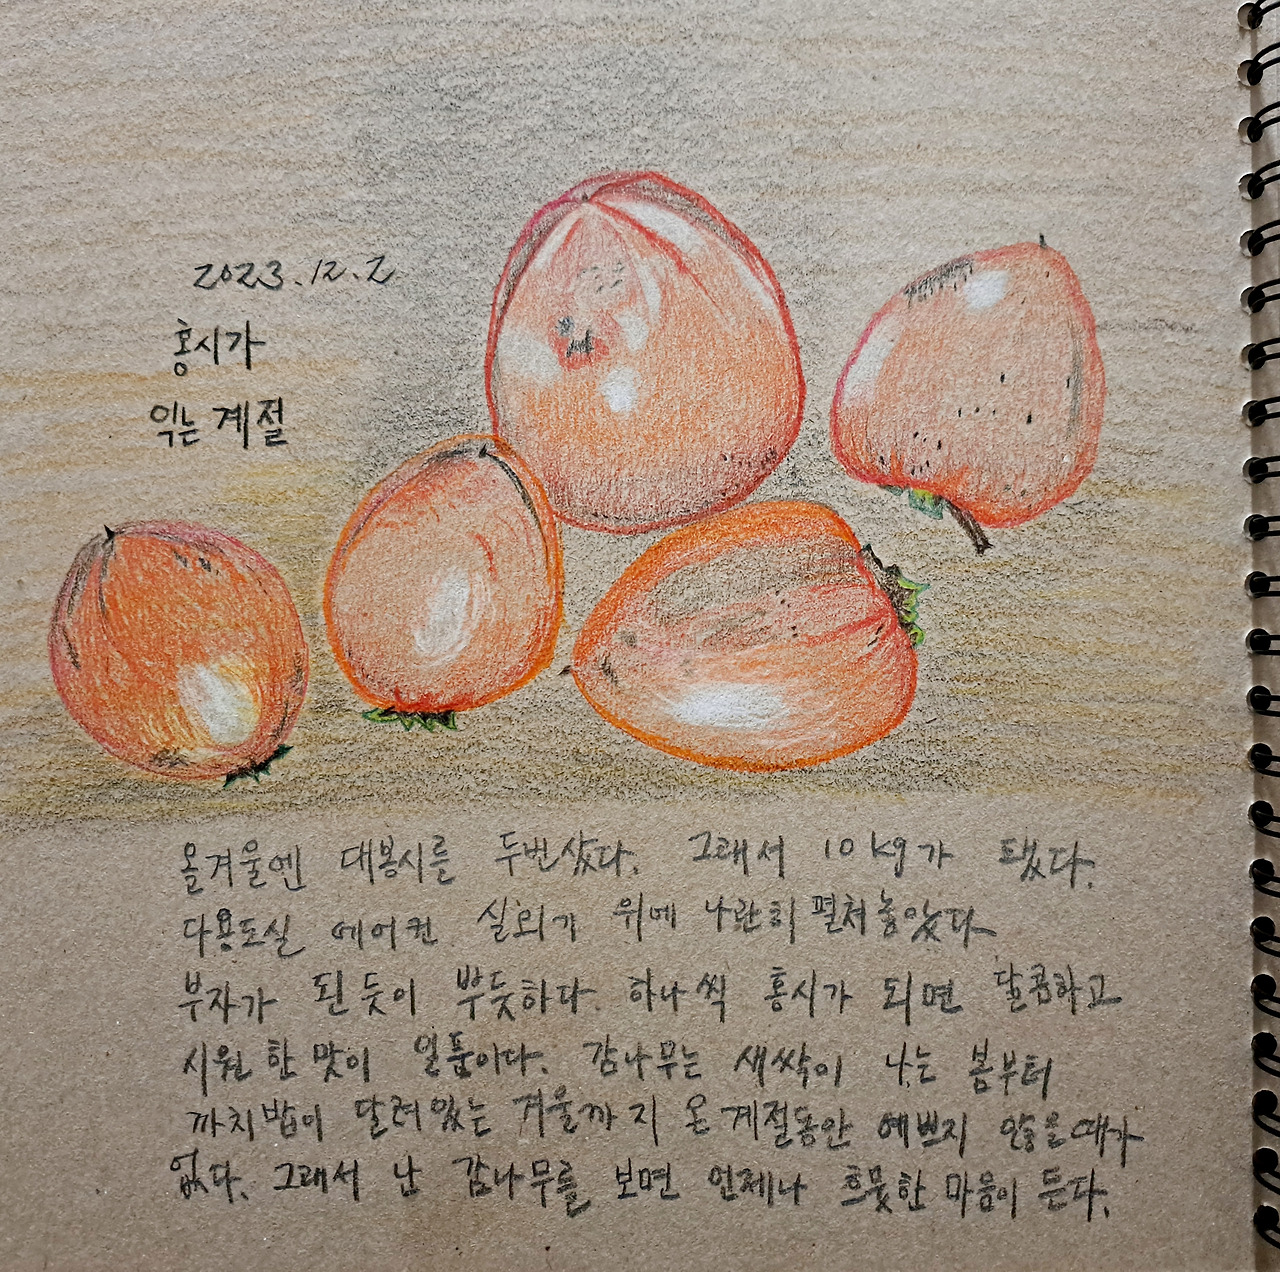 2023.12.2
홍시가
익는 계절
올겨울엔 대봉시를 두번 샀다. 그래서 10kg가 됐다.
다용도실 에어컨 실외기 위에 나란히 펼쳐놓았다
부자가 된듯이 뿌듯하다. 하나씩 홍시가 되면 달콤하고
시원한 맛이 일품이다. 감나무는 새싹이 나는 봄부터
까치밥이 달려있는 겨울까지 온 계절동안 예쁘지 않을때가
없다. 그래서 난 감나무를 보면 언제나 흐뭇한 마음이 든다.